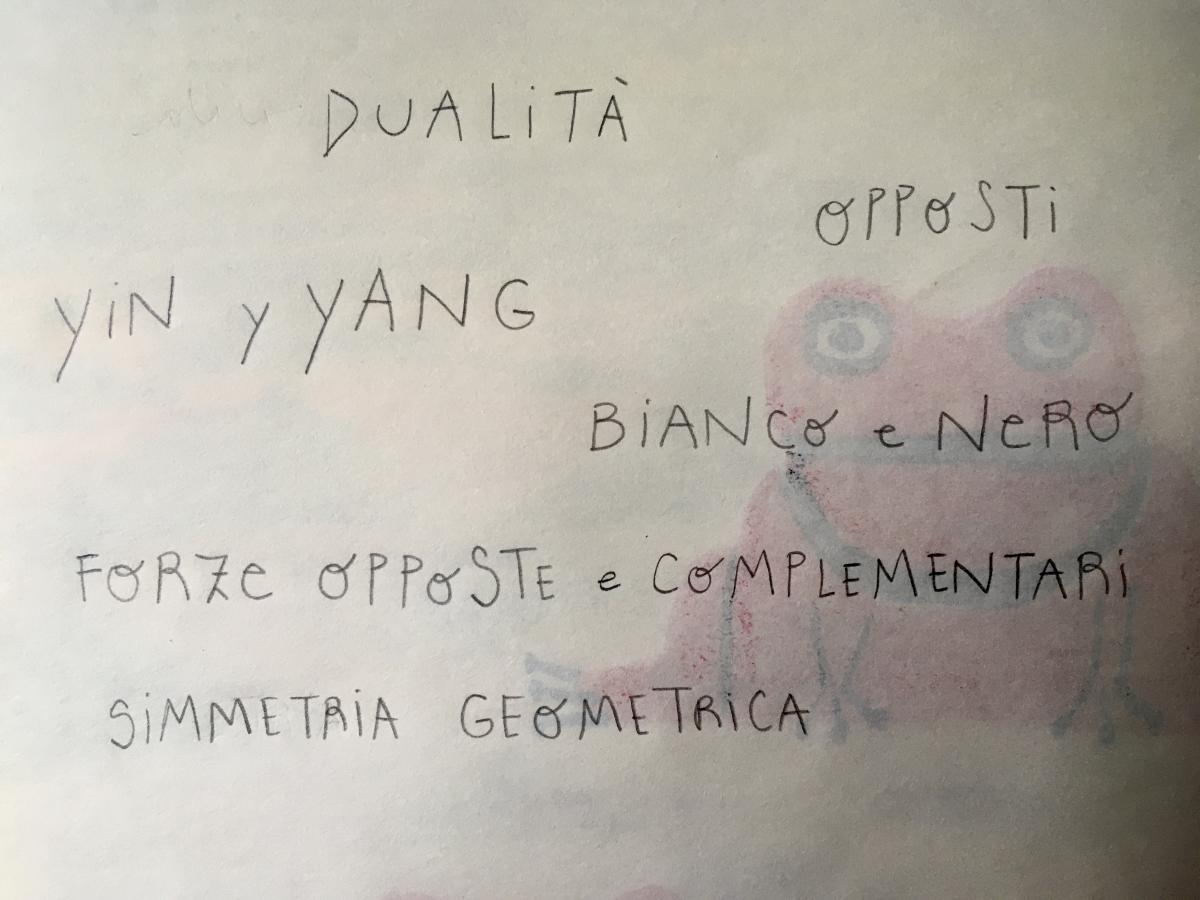 DUALITÀ
OPPOSTI
YIN y YANG
BIANCO e NERO
FORZE OPPOSTE e COMPLEMENTARI
SIMMETRIA GEOMETRICA